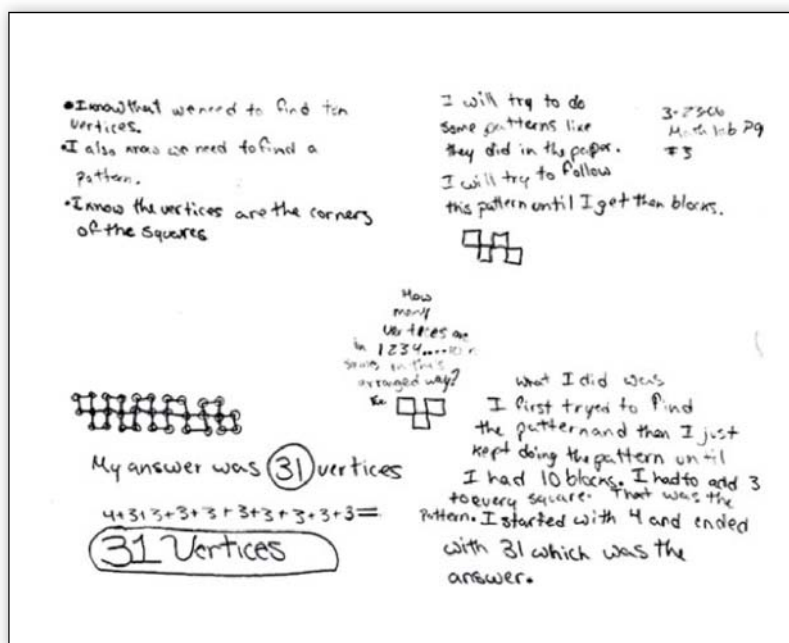 •I know that we need to find ten
vertices.
•I also know we need to find a
pattern.
•I know the vertices are the corners
of the squares
I will try to do
some patterns like
they did in the paper.
I will try to follow
this pattern until I get then blocks.
Math lab pg
#3
How
many
vertices are
in 1 2 3 4
arranged way?
My answer was 31 vertices
4+3+3+3+3+3+3+3+3+3=
31 Vertices
what I did was
I first tryed to find
the pattern and then I just
kept doing the pattern until
I had 10 blocks. I had to add 3
to every square. That was the
pattern. I started with 4 and ended
with 31 which was the
answer.